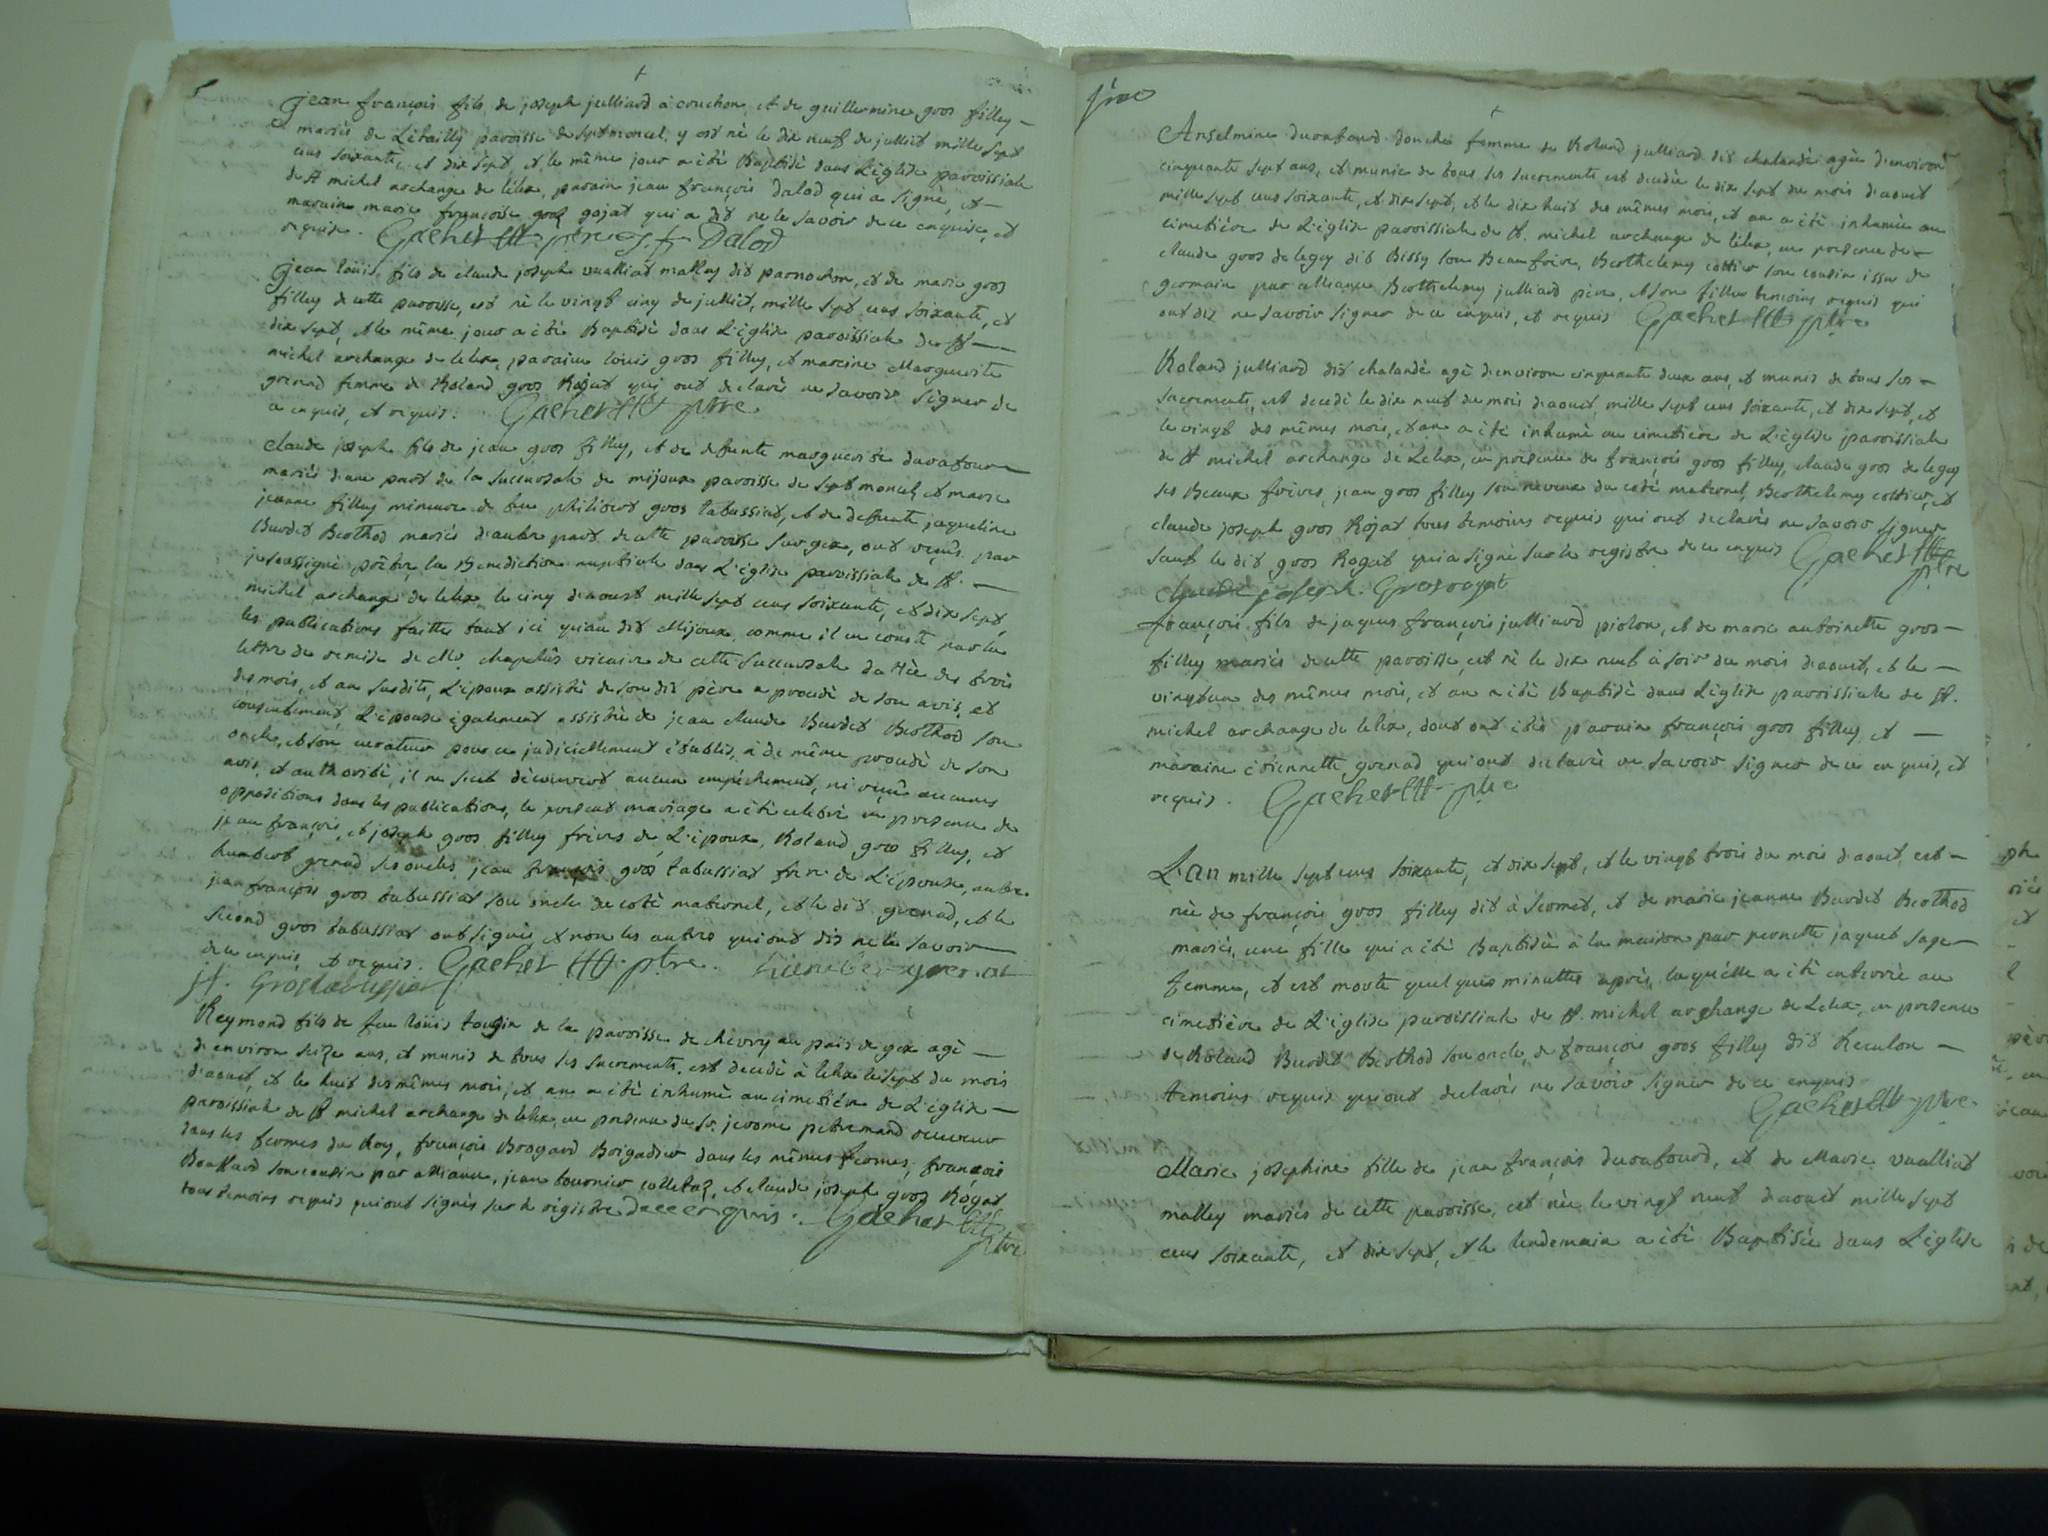 jean françois fils de joseph julliard à couchon, et de guillermine gros filley
mariés de L'ebailly paroisse de septmoncel, y est né le dix neuf de julliet mille sept
cens soixante, et dix sept, et le même jour a été Baptisé dans L'église paroissiale
de st michel archange de lélex, parain jean françois Dalod qui a signé, et
maraine marie françoise gros gojat qui a dit ne le savoir de ce enquise, et
requise. Gachet ptre j. f Dalod
jean loüis fils de claude joseph vualliat malley dit parnochon, et de marie gros
filley de cette paroisse, est né le vingt cinq de julliet, mille sept cens soixante, et
dix sept, et le même jour a été Baptisé dans L'église paroissiale de st
michel archange de lelex, paraine loüis gros filley, et maraine Marguerite
grenad femme de Roland gros Rojat qui ont declarés ne savoir signer de
ce enquis, et requis. Gachet ptre
claude joseph fils de jean gros filley, et de defunte marguerite durafour
mariés d'une part de la succursale de mijoux paroisse de septmoncel, et marie
jeanne filley mineure de feu philibert gros tabussiat, et de defunte jaqueline
Burdet Berthod mariés d'autre part de cette paroisse sur gex, ont reçus par
je soussigné prêtre la Benediction nuptiale dans L'église paroissiale de st.
michel archange de lelex le cinq d'aoust mille sept cens soixante, et dix sept,
les publications faittes tant ici qu'au dit Mijoux comme il en conste par la
lettre de remise de Mr. chapelûs vicaire de cette succursale dattée des trois
des mois, et an susdits, L'époux assisté de son dit père a procedé de son avis, et
consentement, L'épouse également assistée de jean claude Burdet Berthod son
oncle, et son curateur pour ce judiciellement établis, a de même procedé de son
avis, et authorité, il ne s'est découvert aucun empéchement, ni reçûe aucunes
oppositions dans les publications, le present mariage a été celebré en presence de
jean françois, et joseph gros filley frères de L'époux, Roland gros filley, et
humbert grenad ses oncles, jean françois gros tabussiat frere de L'épouse, autre
jean françois gros tabussiat son oncle du coté maternel, et le dit grenad, et le
second gros tabussiat ont signés et non les autres qui ont dis ne le savoir
de ce enquis, et requis. Gachet ptre.
jf. Grostabussiat
Reymond fils de feu loüis tougin de la paroisse de chevry au païs de gex agé
d'environ seize ans, et munis de tous ses sacrements. est decedé à lelex le sept du mois
d'aoust, et le huit des mêmes mois, et an a été inhumé au cimetière de L'église
paroissiale de st michel archange de lelex, en presence du sr. jerome petremand receveur
dans les fermes du Roy, françois Brogard Brigadier dans les mêmes fermes, françois
Bouffard son cousin par alliance, jean tournier colletaz, et claude joseph gros Rogat
tous temoins requis qui ont signés sur le régistre de ce enquis. Gachet
ptre
Anselmine durafourd donche femme de Roland julliard dit chalandé agée d'environ
cinquante sept ans, et munie de tous ses sacrements est decedée le dix sept du mois d'aoust
mille sept cens soixante, et dix sept, et le dix huit des mêmes mois, et an a été inhumée au
cimetière de L'église paroissiale de st. michel archange de lélex, en presence de
claude gros de legey dit Bissy son Beaufrère, Berthelemy cottier son cousin issu de
germain par alliance Berthelemy julliard père, et son filleu temoins requis qui
ont dit ne savoir signer de ce enquis, et requis Gachet ptre
Roland julliard dit chalandé agé d'environ cinquante deux ans, et munis de tous ses
sacrements, est decedé le dix neuf du mois d'aoust, mille sept cens soixante, et dix sept, et
le vingt des mêmes mois, et an a été inhumé au cimetière de L'église paroissiale
de st michel archange de Lelex, en presence de françois gros filley, claude gros de legey
ses Beaux frères, jean gros filley son neveux du coté maternel, Berthelemy cottier, et
claude joseph gros Rojat tous temoins requis qui ont declarés ne savoir signer
sauf le dit gros Rogat qui a signé sur le registre de ce enquis Gachet
ptre
Claude joseph. Gros rogat
françois fils de jaques françois julliard piolon, et de marie antoinette gros
filley mariés de cette paroisse, est né le dix neuf à soir du mois d'aoust, et le
vingtun des mêmes mois, et an a été Baptisé dans L'église paroissiale de st.
michel archange de lelex, dont ont étés parain françois gros filley, et
maraine étiennette grenad qui ont declarés ne savoir signer de ce enquis, et
requis. Gachet ptre
L'an mille sept cens soixante, et dix sept, et le vingt trois du mois d'aoust, est
née de françois gros filley dit à sermet, et de marie jeanne Burdet Berthod
mariés, une fille qui a été Baptisée à la maison par pernette jaquet sage
femme, et est morte quelques minuttes après, laquelle a été enterrée au
cimetière de L'église paroissiale de st. michel archange de Lelex, en presence
de Roland Burdet Berthod son oncle, de françois gros filley dit Reculon
temoins requis qui ont declarés ne savoir signer de ce enquis
Gachet ptre.
Marie josephine fille de jean françois durafourd, et de Marie vualliat
malley mariés de cette paroisse, est née le vingt neuf d'aoust mille sept
cens soixante, et dix sept, et le lendemain a été Baptisée dans L'église